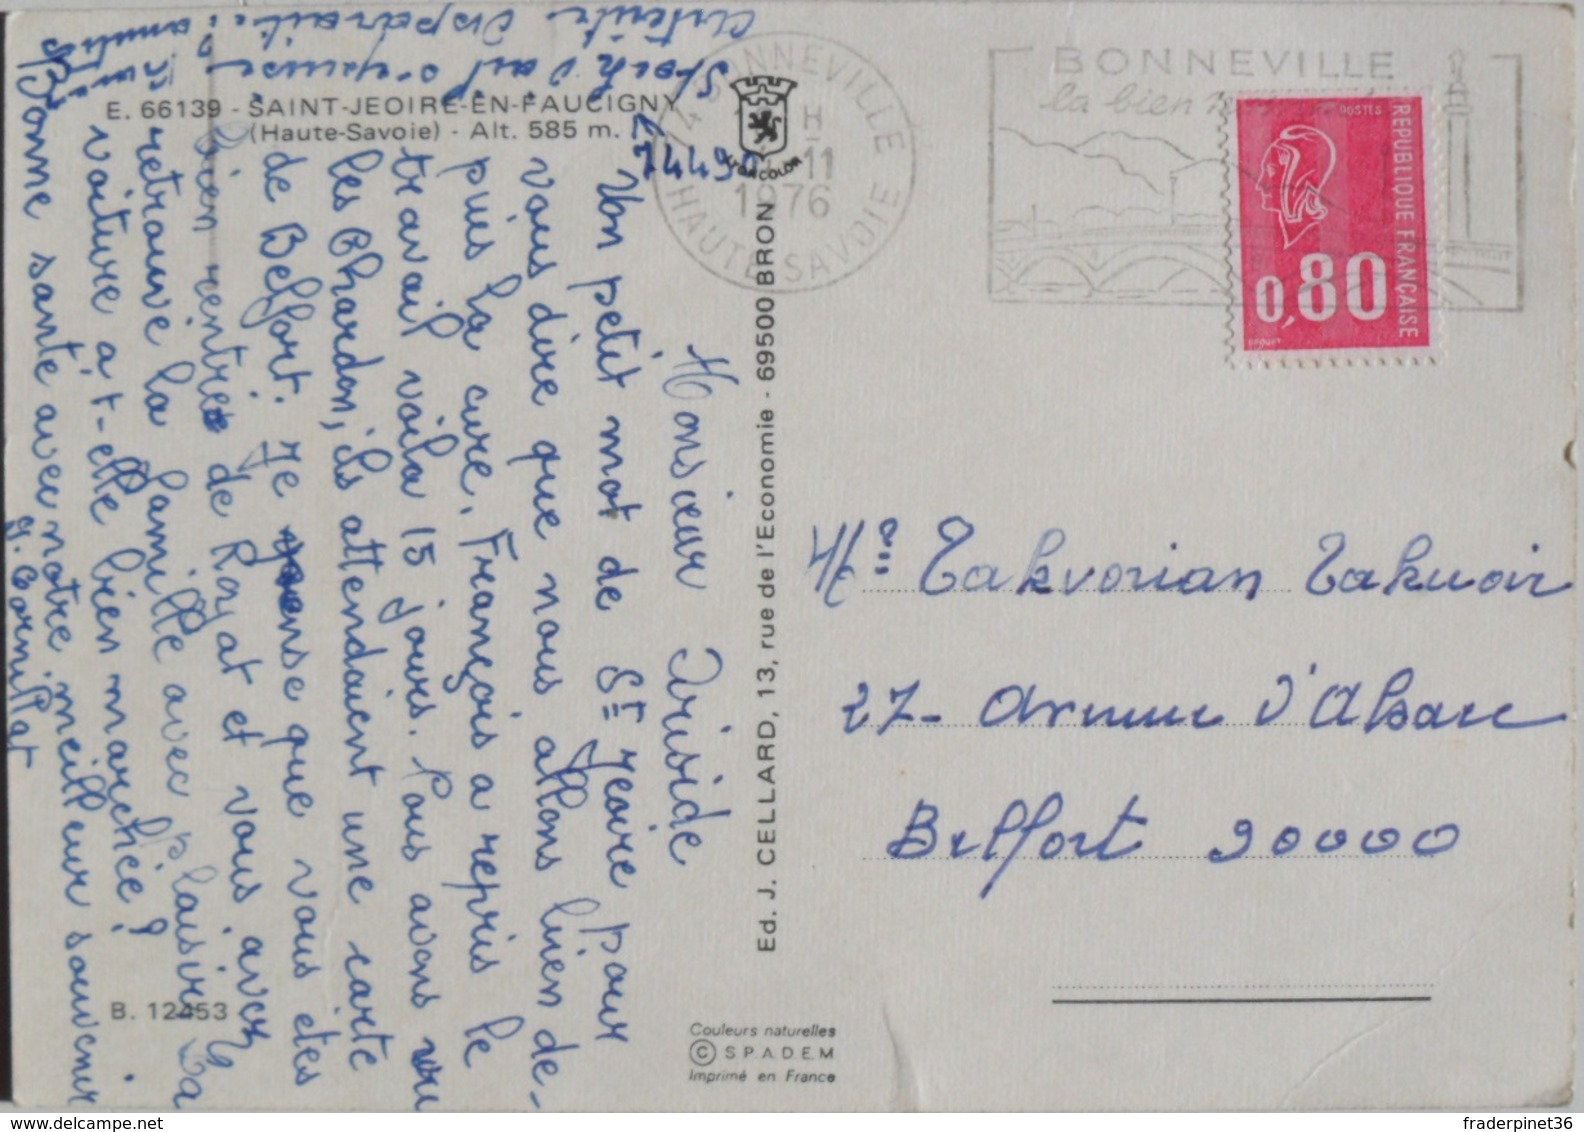 E. 66139 - SAINT-JEOIRE-EN-FAUCIGNY
(Haute-Savoie) - Alt. 585 m.
74490
Monsieur Aristide
Un petit mot de St Jeoire pour
vous dire que nous allons bien de-
puis la cure. François a repris le
travail voila 15 jours. Nous avons vu
les Chardon, ils attendaient une carte
de Belfort. Je pense que vous êtes
bien rentré de Royat et vous avez
retrouvé la famille avec plaisir. La
voiture a-t-elle bien marchée ?
Bonne santé avec notre meilleur souvenir
G. Cornillat
disparaite
Ed. J. CELLARD, 13, rue de l'Economie - 69500 BRON
B. 12453
Couleurs naturelles
© SPADEM
Imprimé en France
74 BONNEVILLE
H
11
1976
HAUTE-SAVOIE
BONNEVILLE
la bien
POSTES
REPUBLIQUE FRANÇAISE
0,80
Mr Takvorian Takuoir
27 - Avenue d'Alsace
Belfort 90000
delcampe.net
fraderpinet36